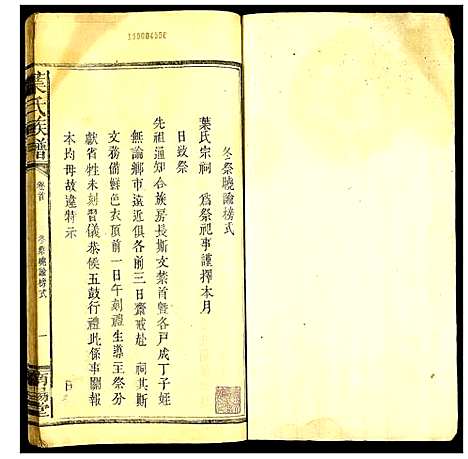 130004506
冬祭曉諭榜式
葉氏宗祠 為祭祀事謹擇本月
日致祭
先祖通知合族房長斯文禁首曁各戸成丁子姪
無論鄉市遠近俱各前三日齋戒赴 祠其斯
文務備鮮色衣頂前一日午刻禮生導主祭分
獻省牲未刻習儀恭候五鼓行禮此係事關報
本均毋故違特示
日
葉氏族譜
卷首
冬祭曉諭榜式
一
南陽堂